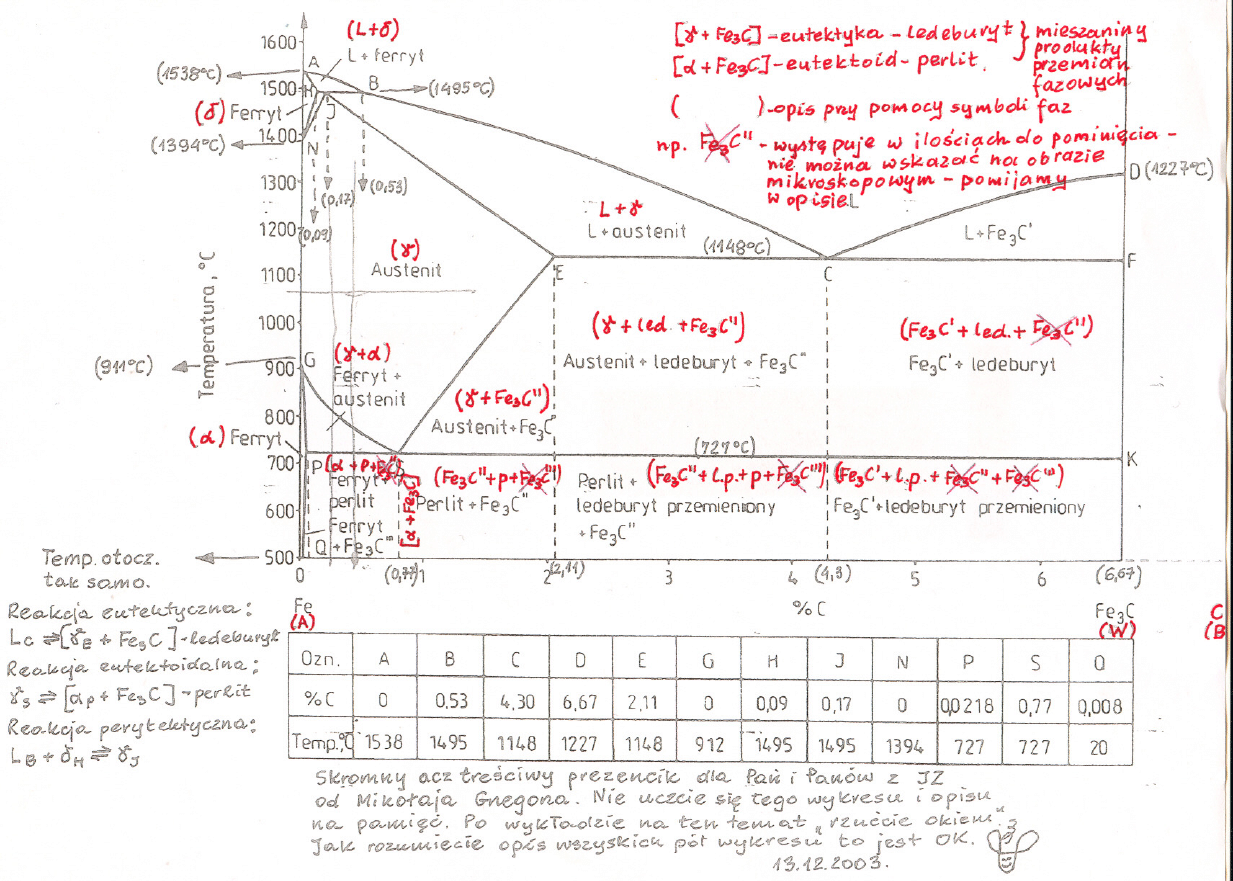 [γ + Fe₃C] - eutektyka - ledeburyt } mieszaniny
[α + Fe₃C] - eutektoid - perlit. produkty
przemian
fazowych
( ) - opis przy pomocy symboli faz
np. Fe₃C" - występuje w ilościach do pominięcia -
nie można wskazać na obrazie
mikroskopowym - pomijamy
w opisie
L
Temperatura, °C
1600
1500
1400
1300
1200
1100
1000
900
800
700
600
500
(L+δ)
L + ferryt
(1538°C)
A
H
J
B
(1495°C)
(δ) Ferryt
(1394°C)
N
(0,09)
(0,17)
(0,53)
D (1227°C)
L + γ
L + austenit
(1148°C)
L + Fe₃C'
E
C
F
(γ)
Austenit
(911°C)
G
(γ+α)
Ferryt +
austenit
(γ + led. + Fe₃C")
Austenit + ledeburyt + Fe₃C"
(Fe₃C' + led. + Fe₃C")
Fe₃C' + ledeburyt
(γ + Fe₃C")
Austenit + Fe₃C
(α) Ferryt
(727°C)
P
K
Ferryt +
perlit
Ferryt
Q + Fe₃C‴
[α + Fe₃C]
(Fe₃C" + p + Fe₃C‴)
Perlit + Fe₃C"
(Fe₃C" + l.p. + p + Fe₃C‴)
Perlit +
ledeburyt przemieniony
+ Fe₃C"
(Fe₃C' + l.p. + Fe₃C" + Fe₃C‴)
Fe₃C' + ledeburyt przemieniony
Temp. otocz.
tak samo.
0 (0,77) 1 2 (2,11) 3 4 (4,3) 5 6 (6,67)
Fe % C Fe₃C C
(A) (W) (B
Reakcja eutektyczna:
L_C ⇌ [γ_E + Fe₃C] - ledeburyt
Reakcja eutektoidalna:
γ_S ⇌ [α_P + Fe₃C] - perlit
Reakcja perytektyczna:
L_B + δ_H ⇌ γ_J
Ozn. A B C D E G H J N P S Q
% C 0 0,53 4,30 6,67 2,11 0 0,09 0,17 0 0,0218 0,77 0,008
Temp.°C 1538 1495 1148 1227 1148 912 1495 1495 1394 727 727 20
Skromny acz treściwy prezencik dla Pań i Panów z JZ
od Mikołaja Gnegona. Nie uczcie się tego wykresu i opisu
na pamięć. Po wykładzie na ten temat „rzućcie okiem".
Jak rozumiecie opis wszyskich pół wykresu to jest OK.
13.12.2003.